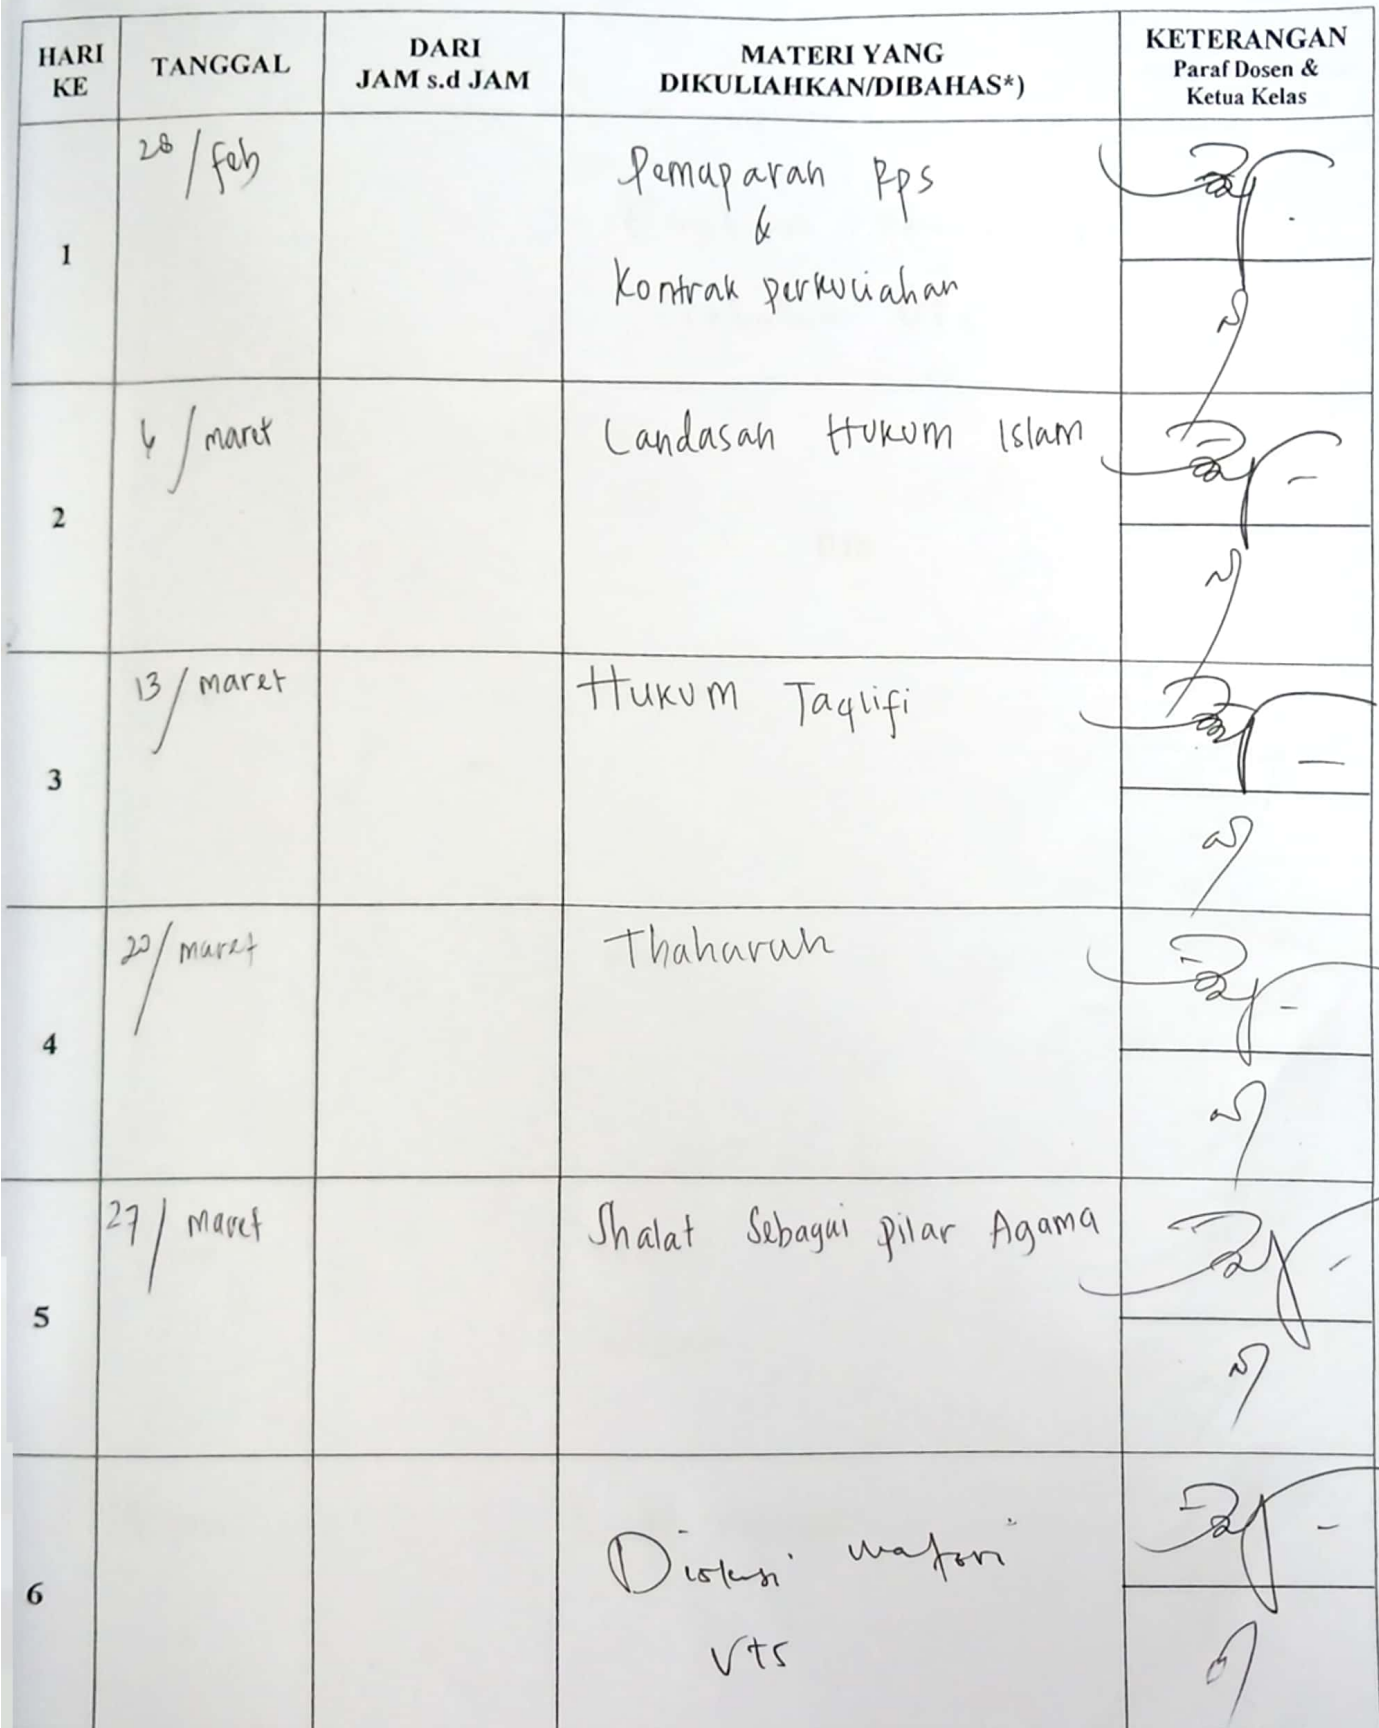 HARI KE
TANGGAL
DARI
JAM s.d JAM
MATERI YANG
DIKULIAHKAN/DIBAHAS*)
KETERANGAN
Paraf Dosen &
Ketua Kelas
1
28/feb
Pemaparan Rps
&
Kontrak perkuliahan
2
/maret
Landasan Hukum Islam
3
13/maret
Hukum Taqlifi
4
20/maret
Thaharah
5
27/maret
Shalat Sebagai pilar Agama
6
Diskusi materi
UTS